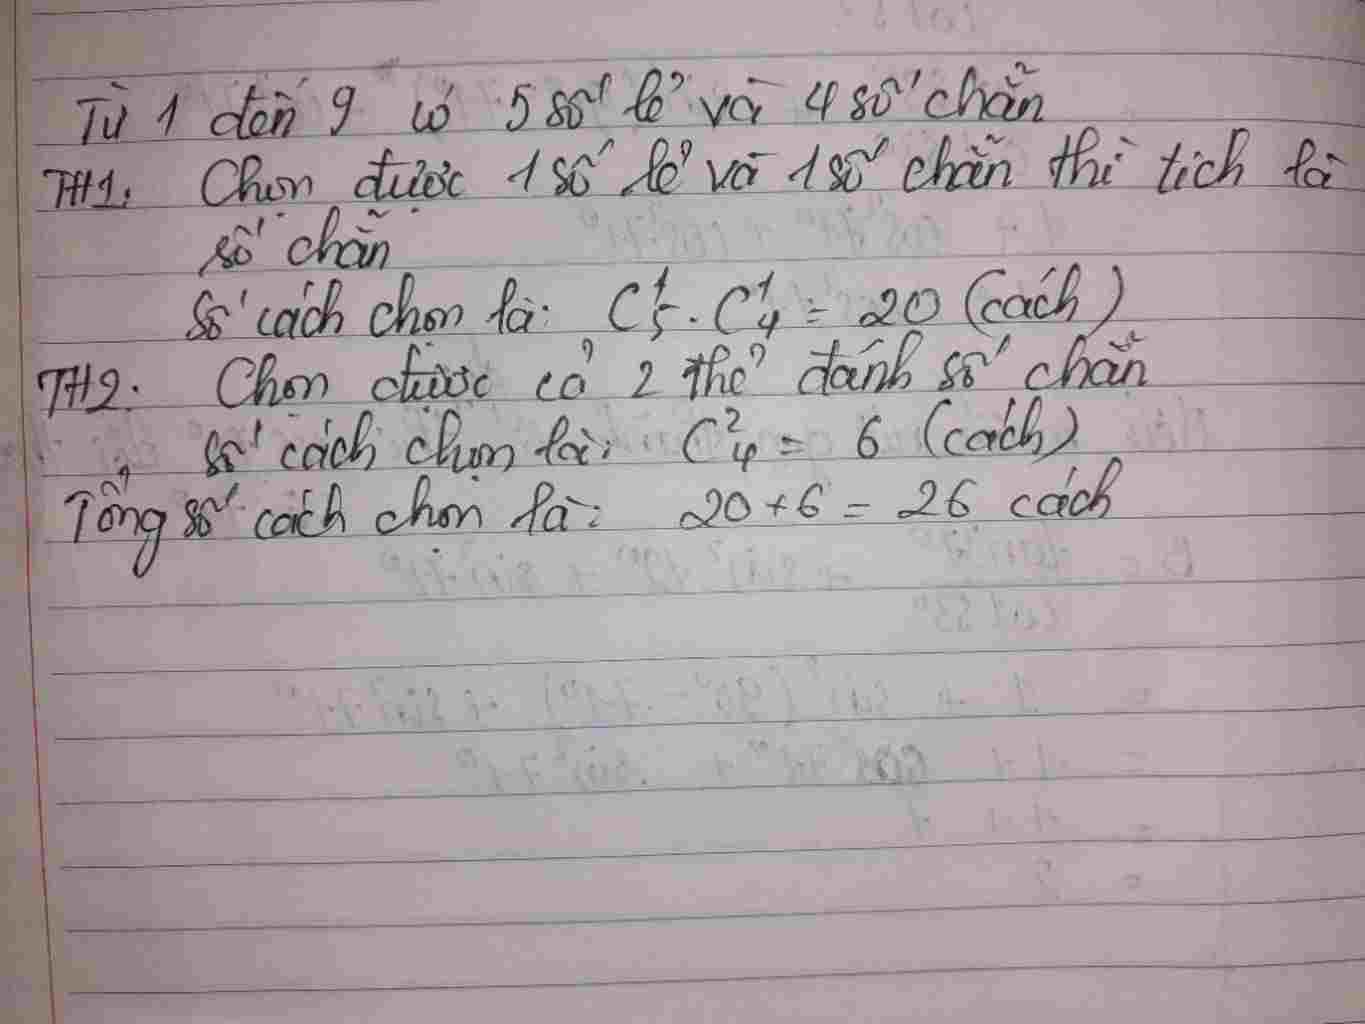 Từ 1 đến 9 có 5 số lẻ và 4 số chẵn
TH1: Chọn được 1 số lẻ và 1 số chẵn thì tích là
số chẵn
Số cách chọn là: C¹₅ . C¹₄ = 20 (cách)
TH2: Chọn được cả 2 thẻ đánh số chẵn
số cách chọn là: C²₄ = 6 (cách)
Tổng số cách chọn là: 20 + 6 = 26 cách